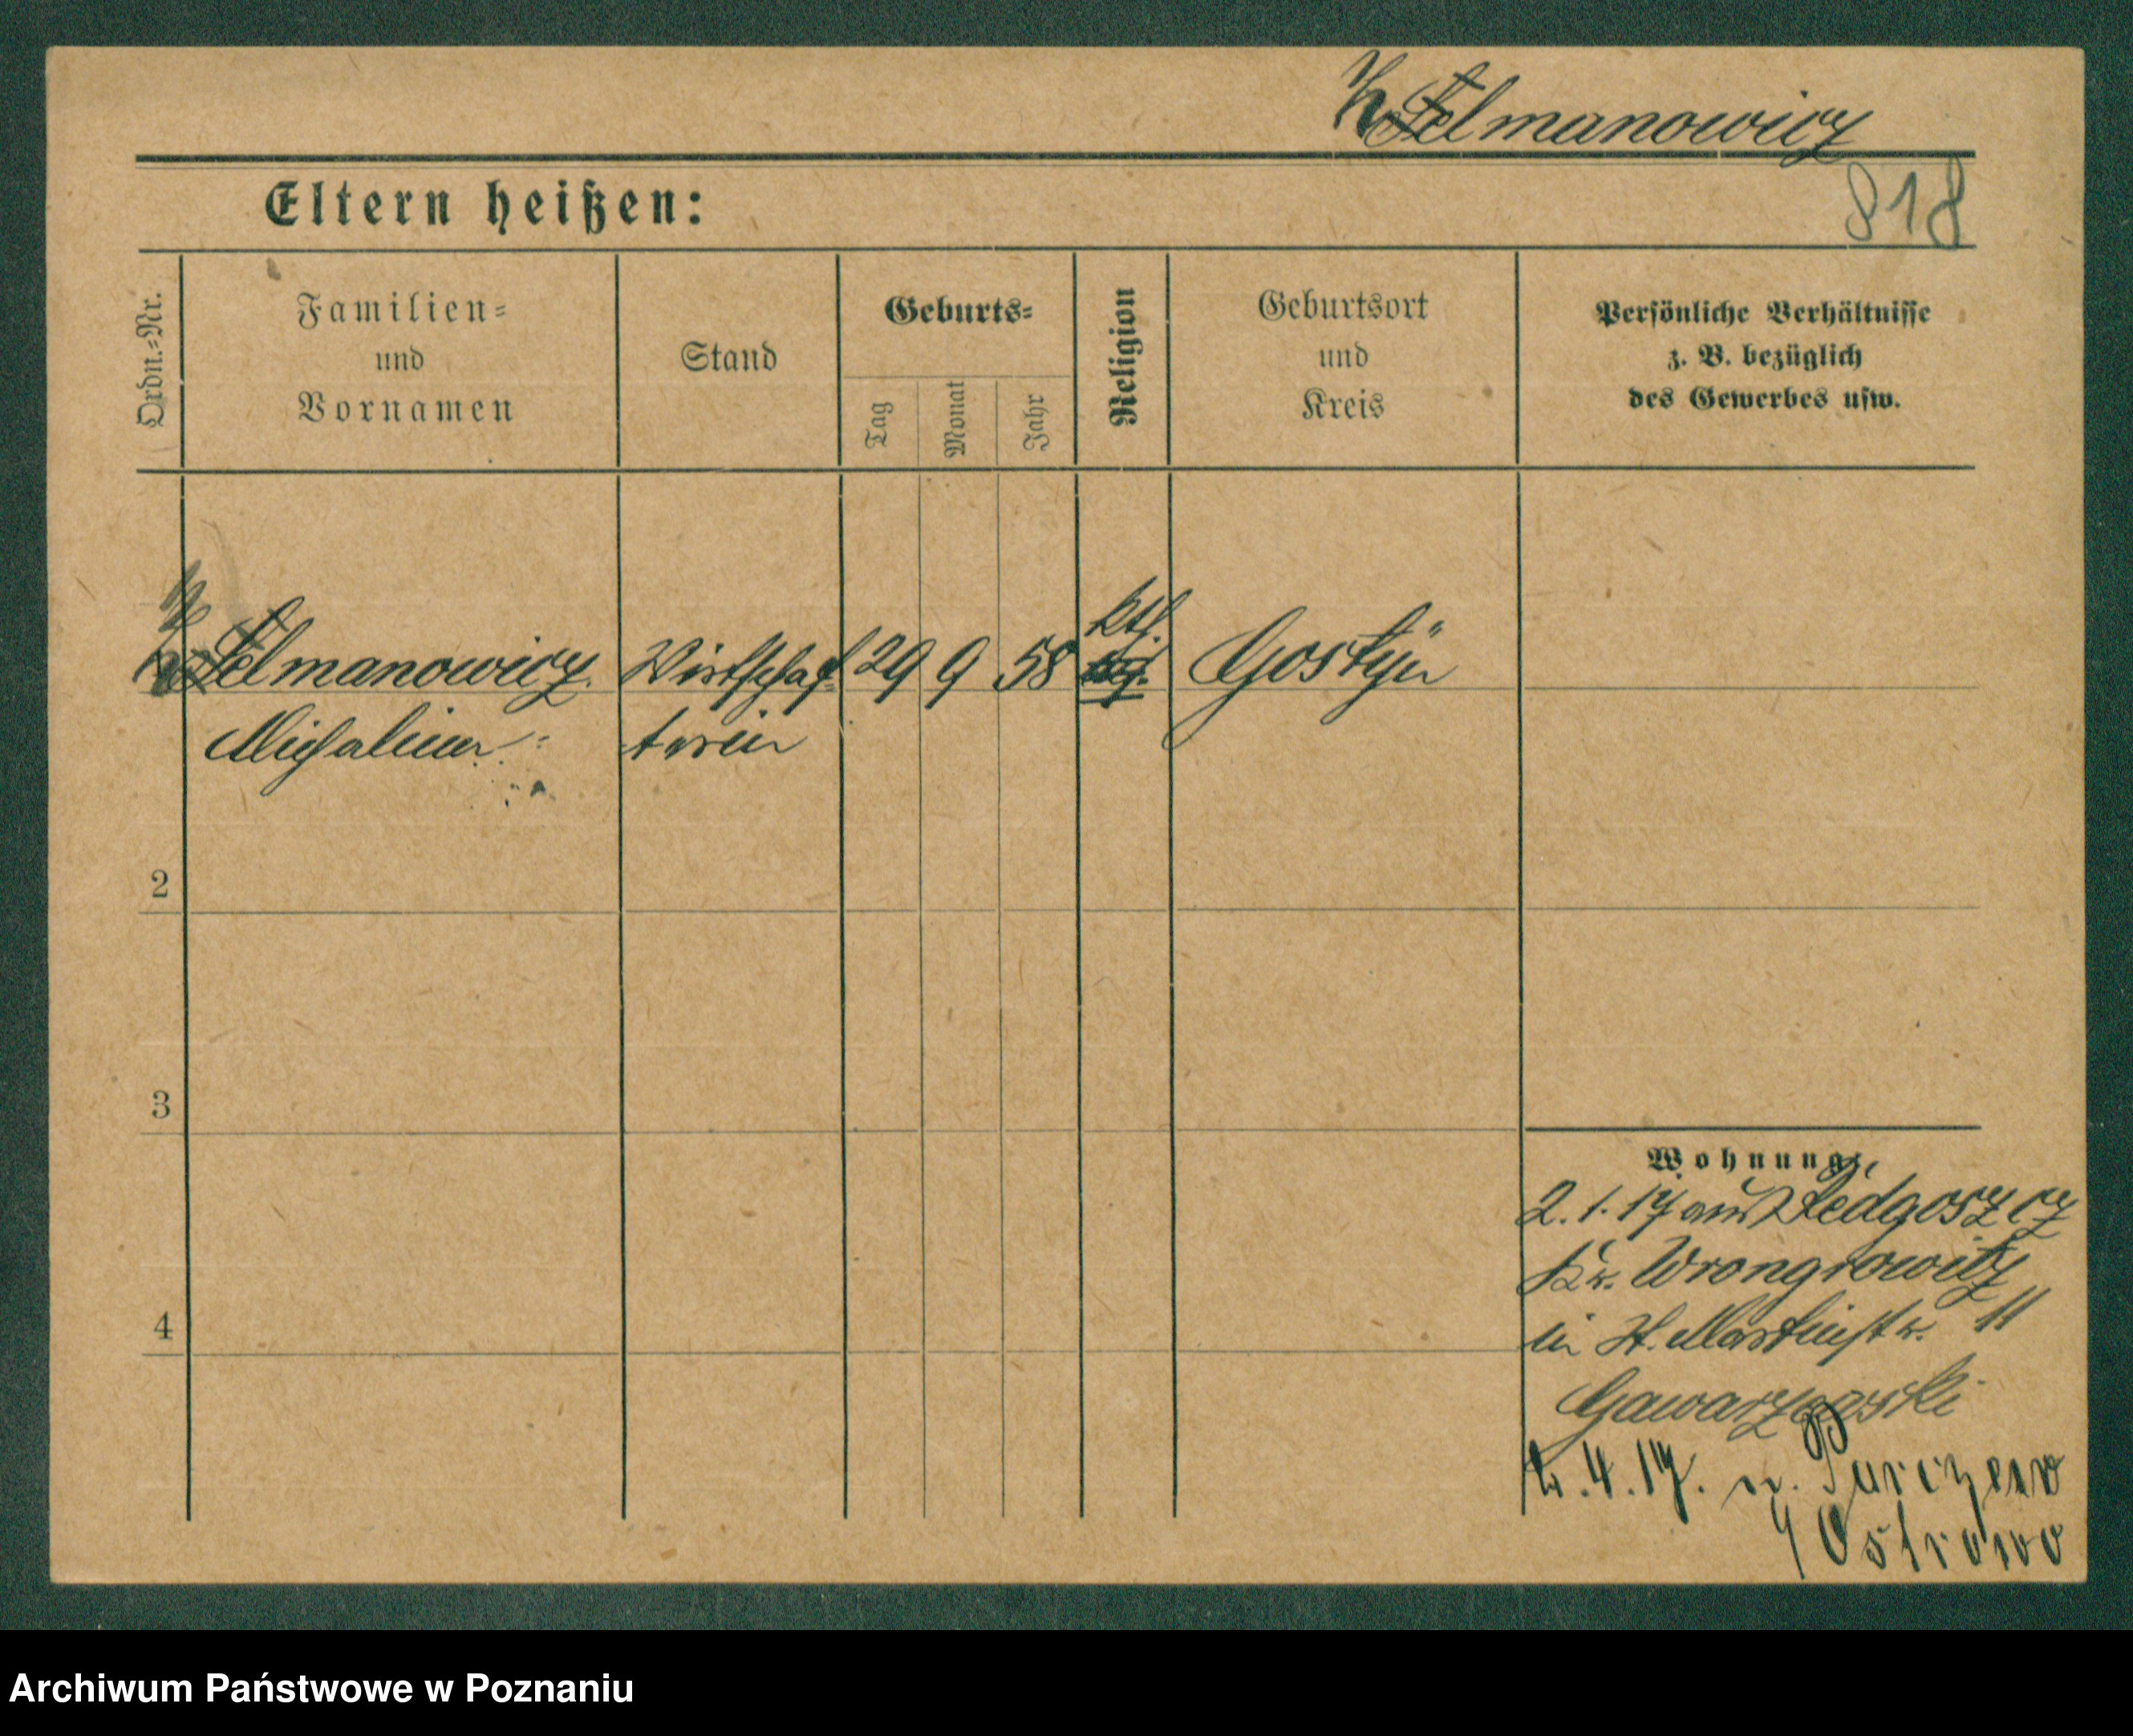 Felmanowicz
818
Eltern heißen:
Ordn.-Nr.
Familien-
und
Vornamen
Stand
Geburts-
Tag
Monat
Jahr
Religion
Geburtsort
und
Kreis
Persönliche Verhältnisse
z. B. bezüglich
des Gewerbes usw.
Felmanowicz Wirtschaf- 29 9 58 kth. Gostyn
Michalina terin
2
3
4
Wohnung
2.1.17 aus Redgoszcz
Kr. Wongrowitz
in St. Martinstr. 11
Gawarzewski
4.17. n. Parczew
Ostrowo
Archiwum Państwowe w Poznaniu